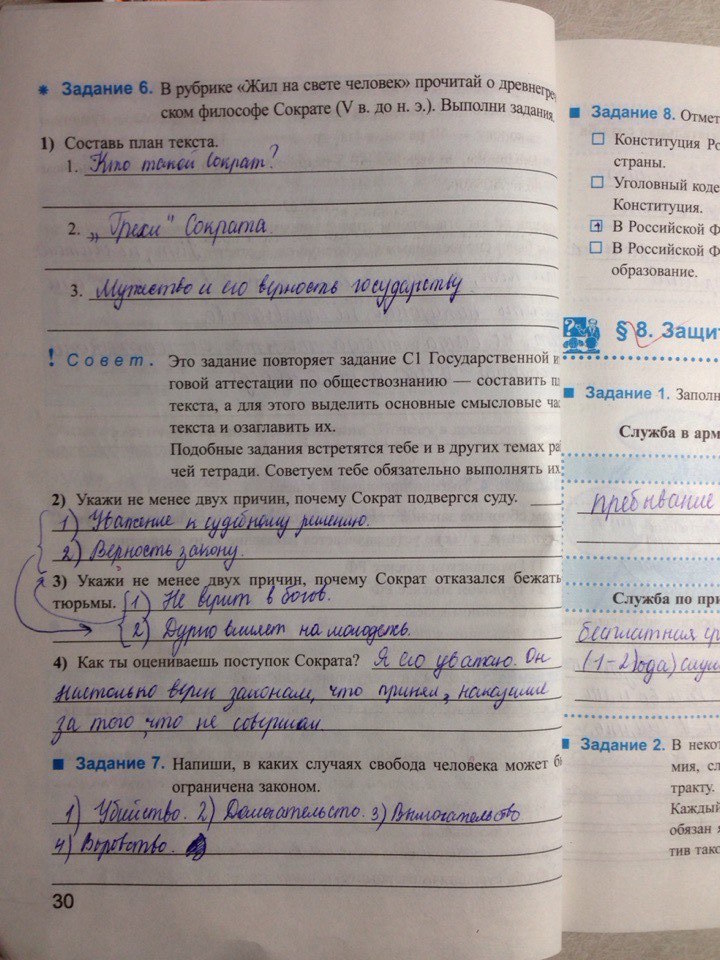 * Задание 6. В рубрике «Жил на свете человек» прочитай о древнегре
ском философе Сократе (V в. до н. э.). Выполни задания.
1) Составь план текста.
1. Кто такой Сократ?
2. „Грехи" Сократа
3. Мужество и его верность государству
! Совет. Это задание повторяет задание С1 Государственной и
говой аттестации по обществознанию — составить п
текста, а для этого выделить основные смысловые ча
текста и озаглавить их.
Подобные задания встретятся тебе и в других темах ра
чей тетради. Советуем тебе обязательно выполнять их
2) Укажи не менее двух причин, почему Сократ подвергся суду.
1) Уважение к судебному решению.
2) Верность закону.
3) Укажи не менее двух причин, почему Сократ отказался бежать
тюрьмы. 1) Не верит в богов.
2) Дурно влияет на молодежь.
4) Как ты оцениваешь поступок Сократа? Я его уважаю. Он
настолько верен законам, что принял наказание
за того, что не совершал.
Задание 7. Напиши, в каких случаях свобода человека может б
ограничена законом.
1) Убийство. 2) Домагательство. 3) Вымогательство
4) Воровство.
30
Задание 8. Отмет
Конституция Ро
страны.
Уголовный коде
Конституция.
В Российской Ф
В Российской Ф
образование.
§ 8. Защит
Задание 1. Заполн
Служба в арм
пребывание
Служба по при
бесплатная ср
(1-2 года) служ
Задание 2. В некот
мия, сл
тракту.
Каждый
обязан я
тив такс